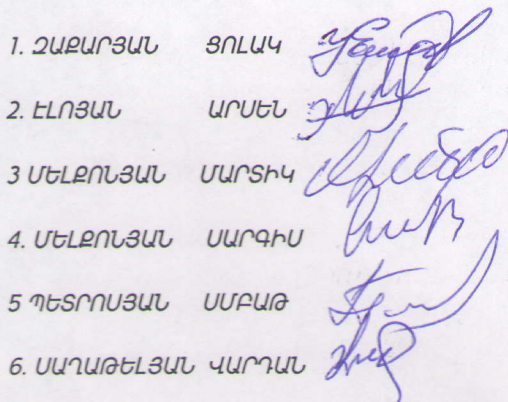 1. ԶԱՔԱՐՅԱՆ ՑՈԼԱԿ
2. ԷԼՈՅԱՆ ԱՐՍԵՆ
3 ՄԵԼՔՈՆՅԱՆ ՄԱՐՏԻԿ
4. ՄԵԼՔՈՆՅԱՆ ՍԱՐԳԻՍ
5 ՊԵՏՐՈՍՅԱՆ ՍՄԲԱԹ
6. ՍԱՂԱԹԵԼՅԱՆ ՎԱՐԴԱՆ